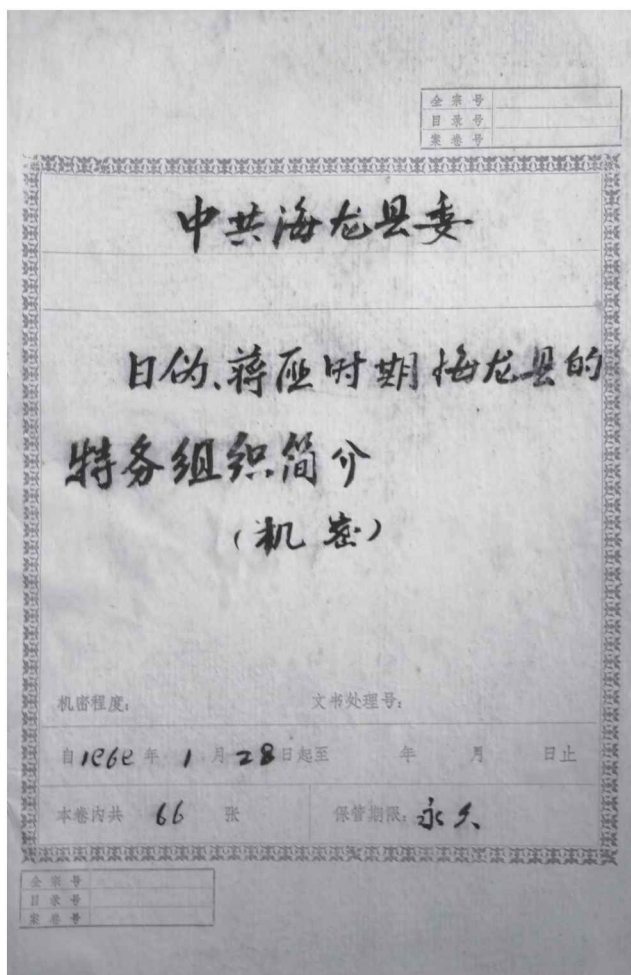 全宗号
目录号
案卷号
中共海龙县委
日伪、蒋匪时期海龙县的
特务组织简介
（机密）
机密程度： 文书处理号：
自1969年1月28日起至 年 月 日止
本卷内共 66 张 保管期限：永久
全宗号
目录号
案卷号